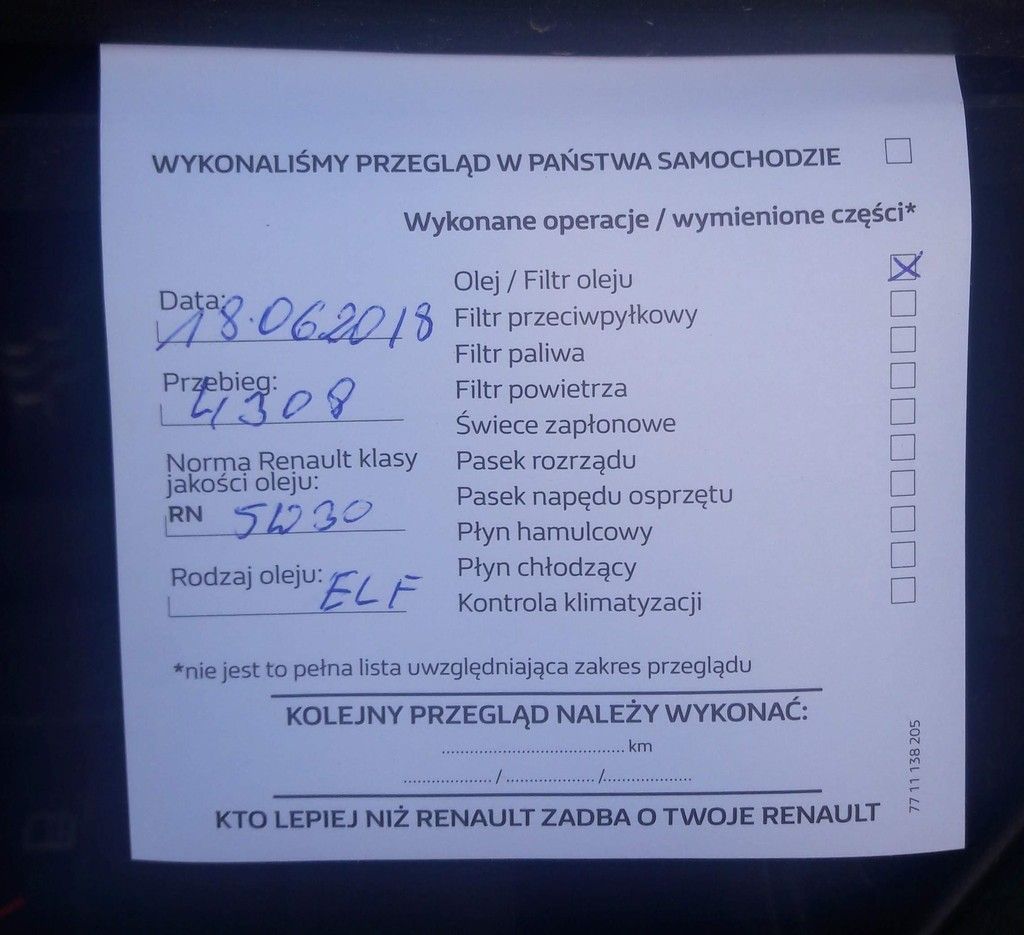 WYKONALIŚMY PRZEGLĄD W PAŃSTWA SAMOCHODZIE
Wykonane operacje / wymienione części*
Data:
18.062018
Przebieg:
4308
Norma Renault klasy
jakości oleju:
RN 5W30
Rodzaj oleju:
ELF
Olej / Filtr oleju
Filtr przeciwpyłkowy
Filtr paliwa
Filtr powietrza
Świece zapłonowe
Pasek rozrządu
Pasek napędu osprzętu
Płyn hamulcowy
Płyn chłodzący
Kontrola klimatyzacji
*nie jest to pełna lista uwzględniająca zakres przeglądu
KOLEJNY PRZEGLĄD NALEŻY WYKONAĆ:
..................................... km
.................. / .................. /..................
KTO LEPIEJ NIŻ RENAULT ZADBA O TWOJE RENAULT
77 11 138 205